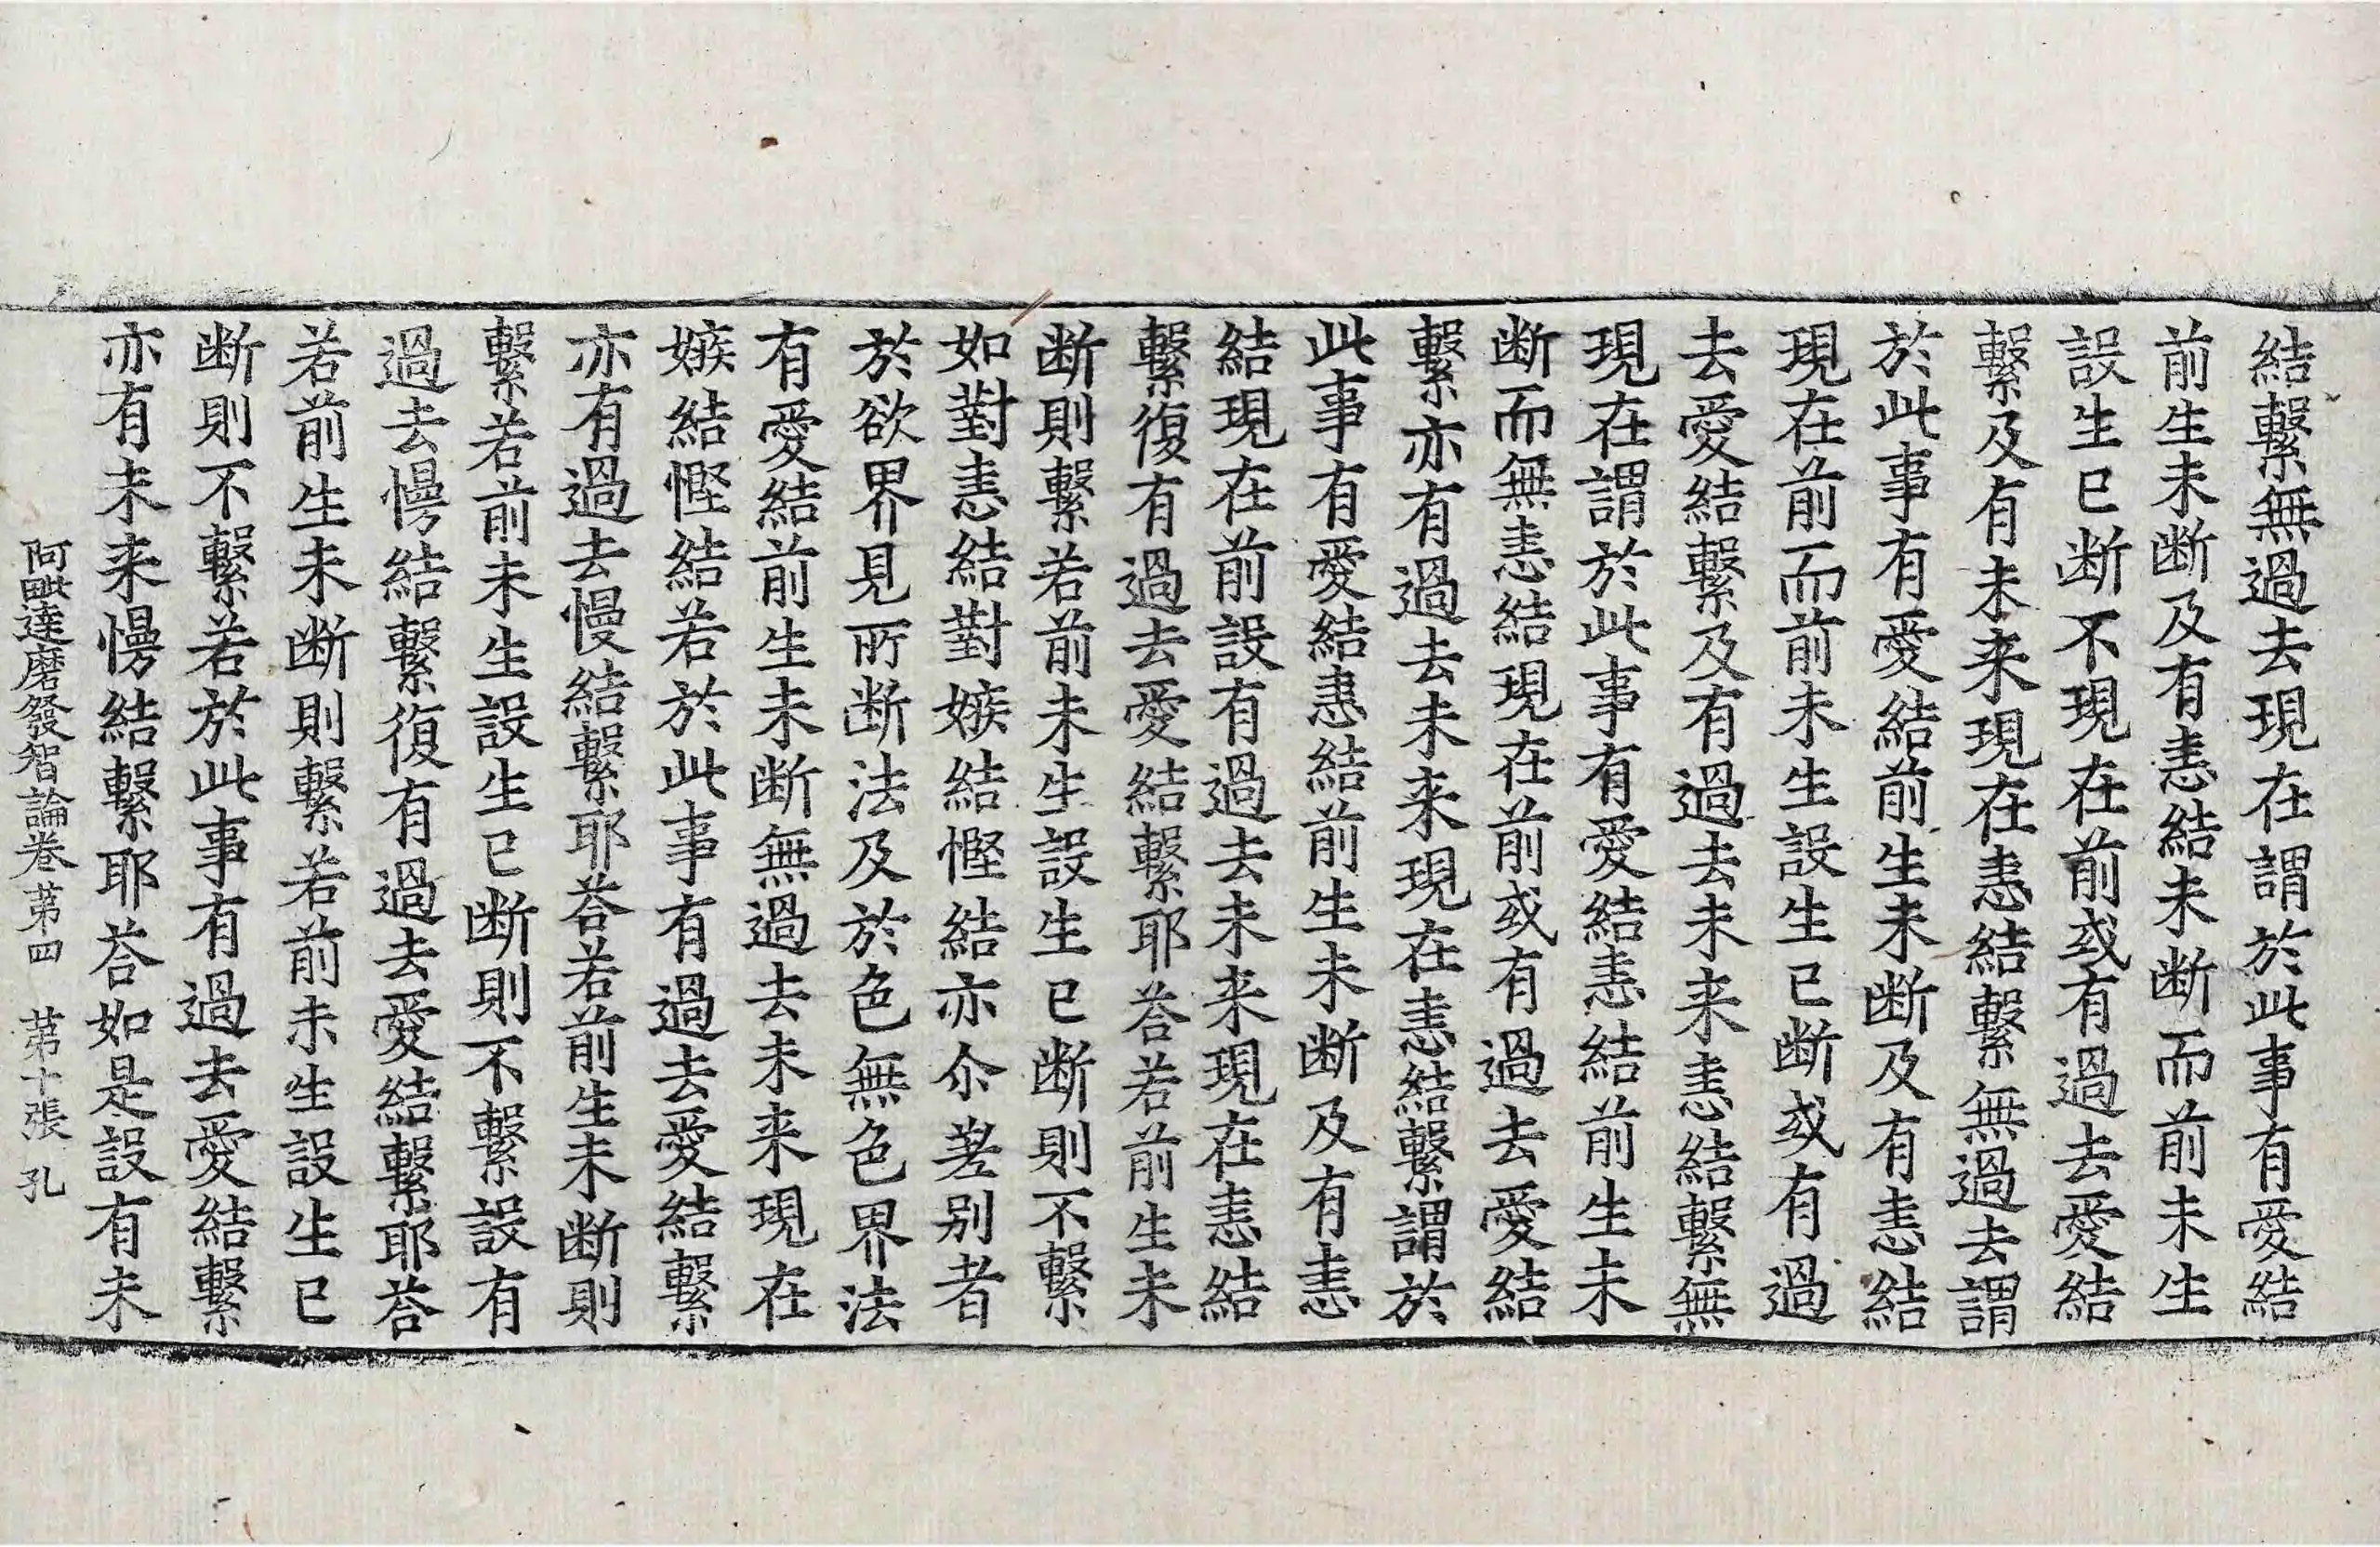 結繫無過去現在謂於此事有愛結
前生未断及有恚結未断而前未生
設生已断不現在前或有過去愛結
繫及有未来現在恚結繫無過去謂
於此事有愛結前生未断及有恚結
現在前而前未生設生已断或有過
去愛結繫及有過去未来恚結繫無
現在謂於此事有愛結恚結前生未
断而無恚結現在前或有過去愛結
繫亦有過去未来現在恚結繫謂於
此事有愛結恚結前生未断及有恚
結現在前設有過去未来現在恚結
繫復有過去愛結繫耶荅若前生未
断則繫若前未生設生已断則不繫
如對恚結對嫉結慳結亦尒差別者
於欲界見所断法及於色無色界法
有愛結前生未断無過去未来現在
嫉結慳結若於此事有過去愛結繫
亦有過去慢結繫耶荅若前生未断則
繫若前未生設生已断則不繫設有
過去慢結繫復有過去愛結繫耶荅
若前生未断則繫若前未生設生已
断則不繫若於此事有過去愛結繫
亦有未来慢結繫耶荅如是設有未
阿毗達磨發智論卷苐四 苐十張 孔